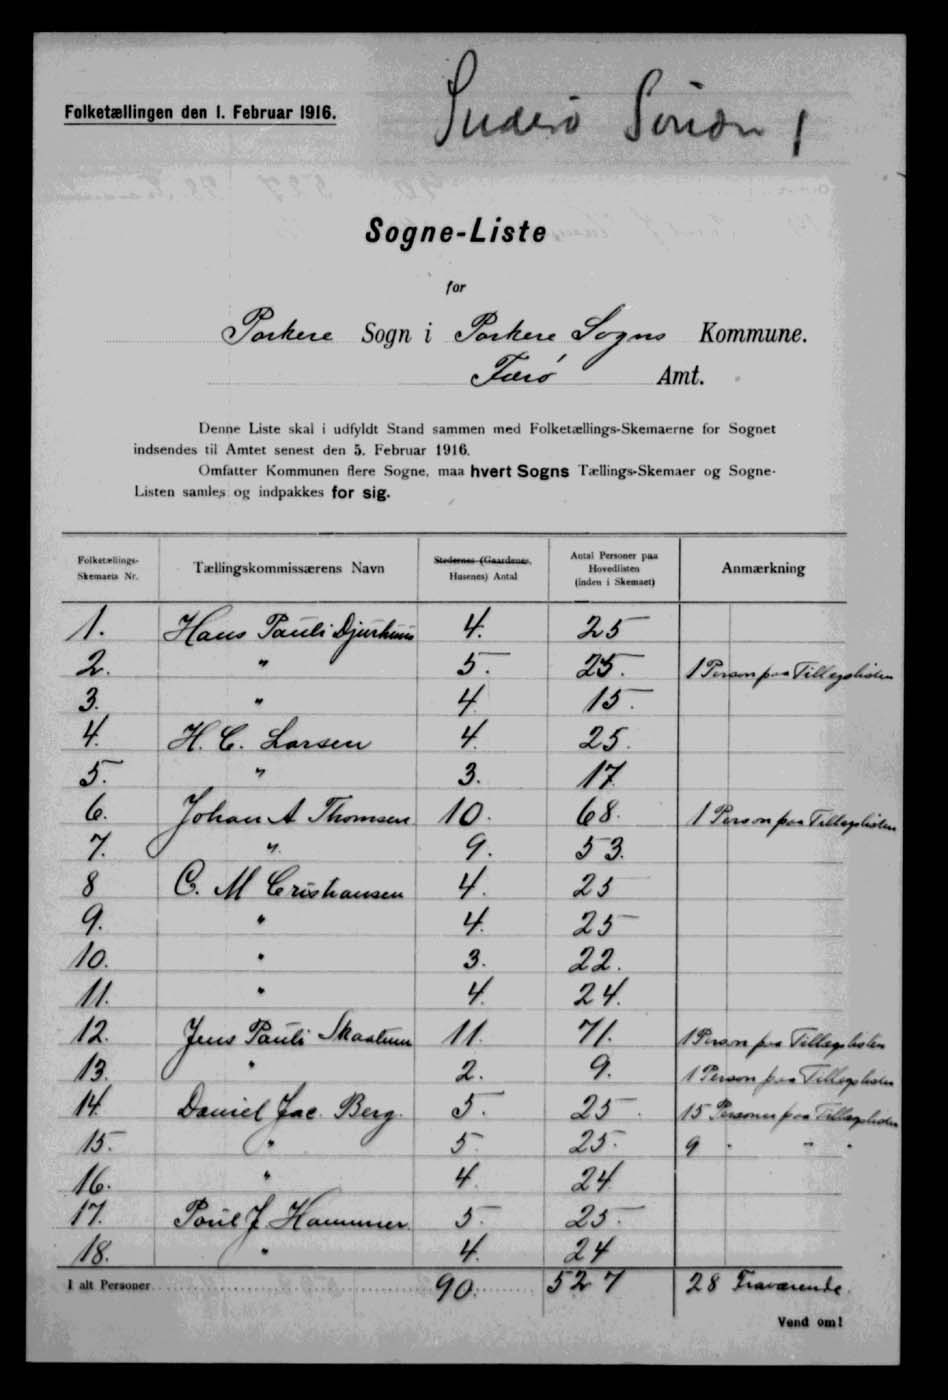 Folketællingen den 1. Februar 1916.
Suderø Søndn 1
Sogne-Liste
for
Porkere Sogn i Porkere Sogns Kommune.
Færø Amt.
Denne Liste skal i udfyldt Stand sammen med Folketællings-Skemaerne for Sognet
indsendes til Amtet senest den 5. Februar 1916.
Omfatter Kommunen flere Sogne, maa hvert Sogns Tællings-Skemaer og Sogne-
Listen samles og indpakkes for sig.
Folketællings-
Skemaets Nr.
Tællingskommissærens Navn
Stedernes (Gaardenes,
Husenes) Antal
Antal Personer paa
Hovedlisten
(inden i Skemaet)
Anmærkning
1. Hans Pauli Djurhuus 4. 25
2. " 5. 25. 1 Person paa Tillægslisten
3. " 4. 15.
4. H. C. Larsen 4. 25.
5. " 3. 17.
6. Johan A Thomsen 10. 68. 1 Person paa Tillægslisten
7. " 9. 53.
8 C. M Cristiansen 4. 25
9. " 4. 25
10. " 3. 22.
11. " 4. 24.
12. Jens Pauli Skaalum 11. 71. 1 Person paa Tillægslisten
13. " 2. 9. 1 Person paa Tillægslisten
14. Daniel Jac. Berg. 5. 25. 15 Personer paa Tillægslisten
15. " 5 25. 9 " " "
16. " 4. 24
17. Poul J. Hammer. 5. 25.
18. " 4. 24
I alt Personer 90. 527 28 Fraværende.
Vend om!